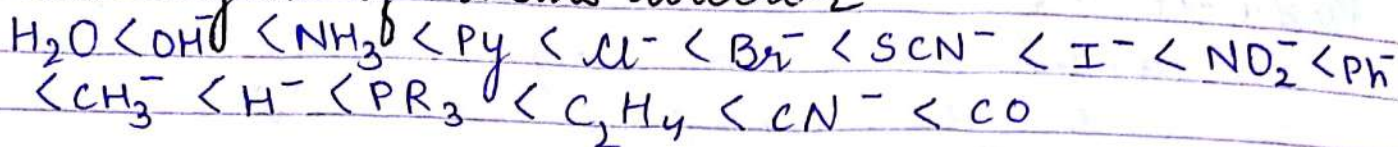 H₂O < OH⁻ < NH₃ < Py < Cl⁻ < Br⁻ < SCN⁻ < I⁻ < NO₂⁻ < Ph⁻
< CH₃⁻ < H⁻ < PR₃ < C₂H₄ < CN⁻ < CO